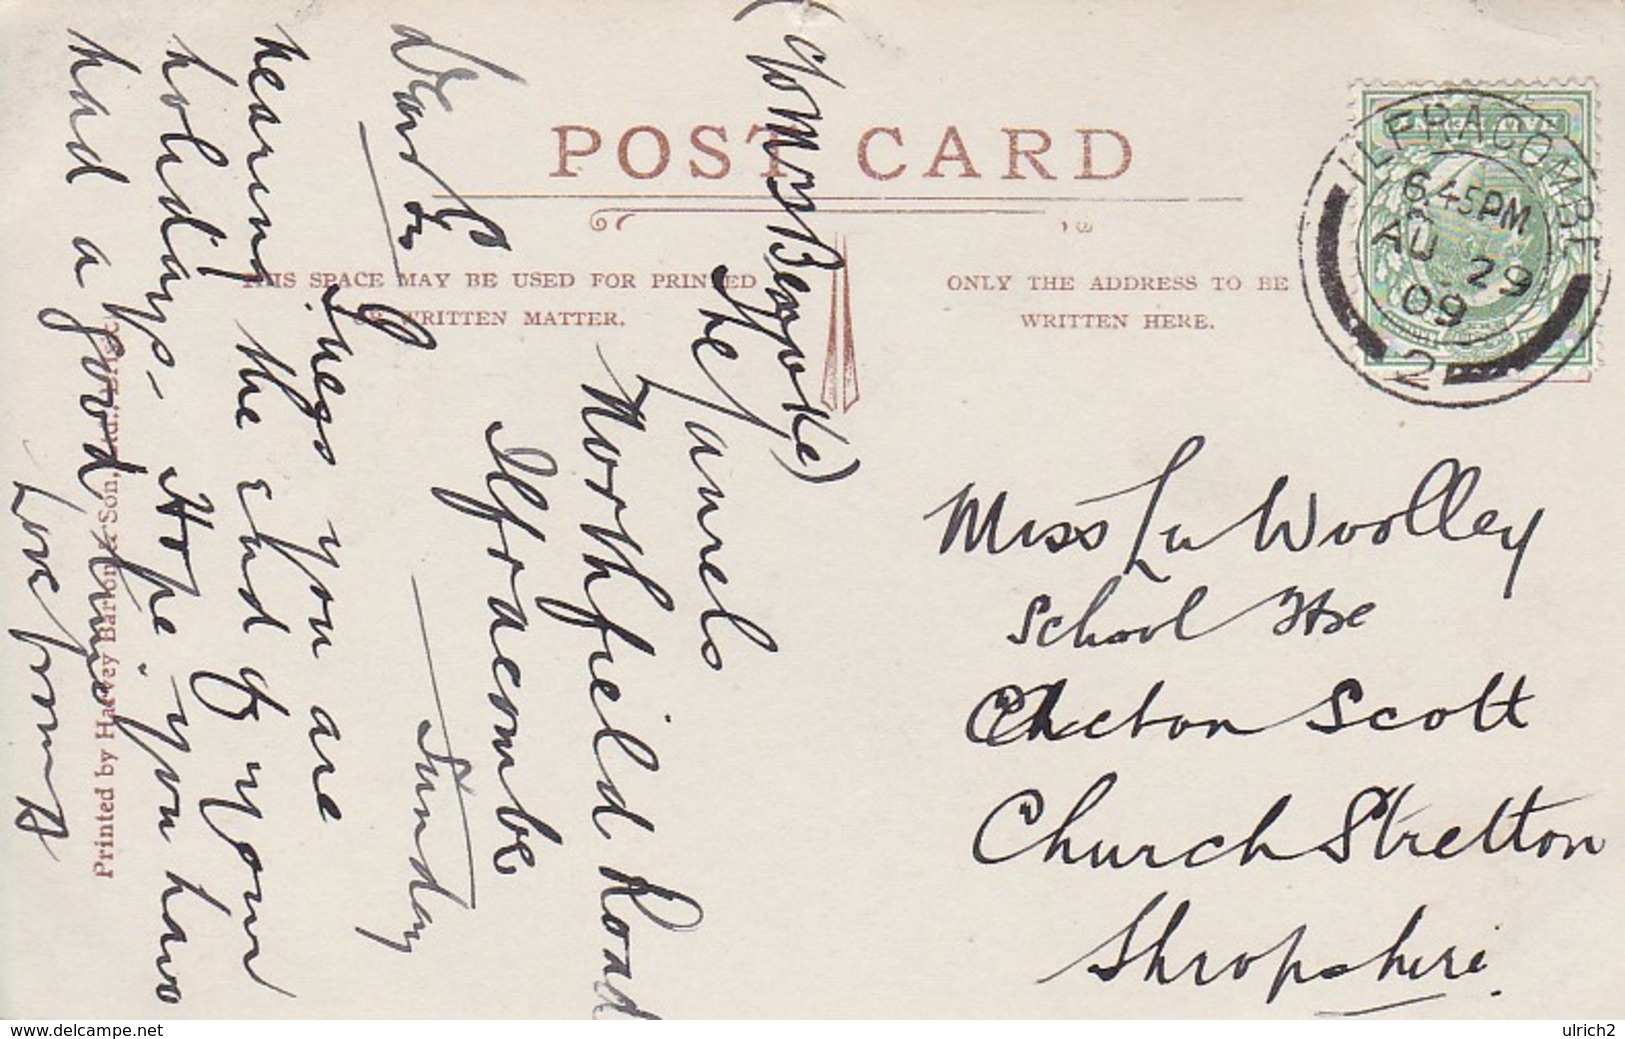 POST CARD
THIS SPACE MAY BE USED FOR PRINTED
OR WRITTEN MATTER.
ONLY THE ADDRESS TO BE
WRITTEN HERE.
ILFRACOMBE
6.45PM
AU 29
09
2
Miss Lu Woolley
School Hse
Acton Scott
Church Stretton
Shropshire.
(c/o Mrs
The Laurels
Northfield Road
Ilfracombe
Sunday
Dear
Guess you are
nearing the end of your
holidays- Hope you have
had a good time
Love from A
Printed by Harvey Barton & Son, Ltd., Bristol
www.delcampe.net
ulrich2